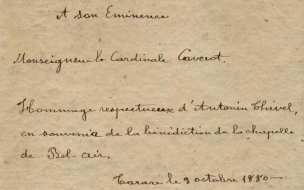 A son Eminence
Monseigneur le Cardinale Caverot.
Hommage respectueux d'Antonin Thivel,
en souvenir de la bénédiction de la chapelle
de Bel-air.
Tarare le 9 octobre 1880